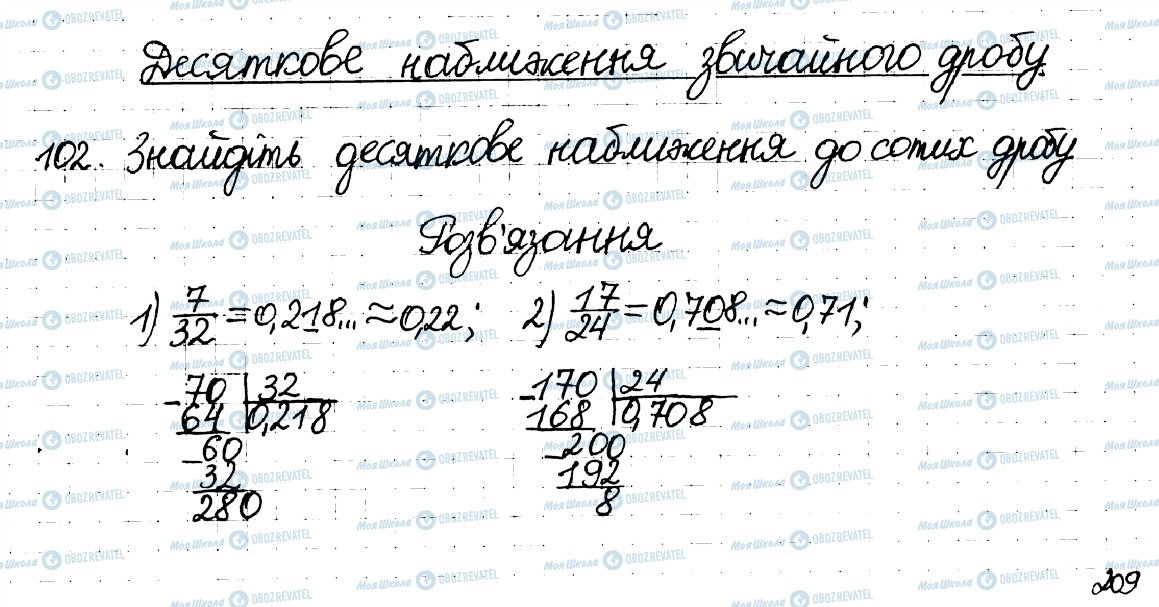 Десяткове наближення звичайного дробу
102. Знайдіть десяткове наближення до сотих дробу
Розв'язання
1) 7/32 = 0,218... ≈ 0,22; 2) 17/24 = 0,708... ≈ 0,71;
-70 | 32
64 | 0,218
-60
32
280
-170 | 24
168 | 0,708
-200
192
8
209
Моя Школа OBOZREVATEL